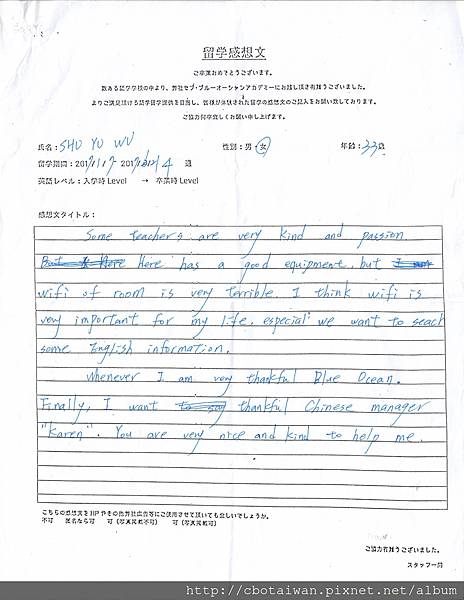 留学感想文
ご卒業おめでとうございます。
数ある語学学校の中より、弊社セブ・ブルーオーシャンアカデミーにお越し頂き有難うございました。
よりご満足頂ける語学留学提供を目指し、皆様が体験された留学の感想文のご記入をお願い致しております。
ご協力何卒宜しくお願い申し上げます。
氏名：SHU YU WU 性別：男・女 年齢：33歳
留学期間：2017/1/7~2017 4 週
英語レベル：入学時 Level → 卒業時 Level
感想文タイトル：
Some teachers are very kind and passion
But Here Here has a good equipment, but I
wifi of room is very terrible. I think wifi is
very important for my life, especial we want to seach
some English information.
Whenever I am very thankful Blue Ocean.
Finally, I want to say thankful Chinese manager
"Karen". You are very nice and kind to help me.
こちらの感想文をHPやその他弊社広告等にご使用させて頂いても宜しいでしょうか。
不可 匿名なら可 可（写真掲載不可） 可（写真掲載可）
ご協力有難うございました。
スタッフ一同
http://cbotaiwan.pixnet.net/album